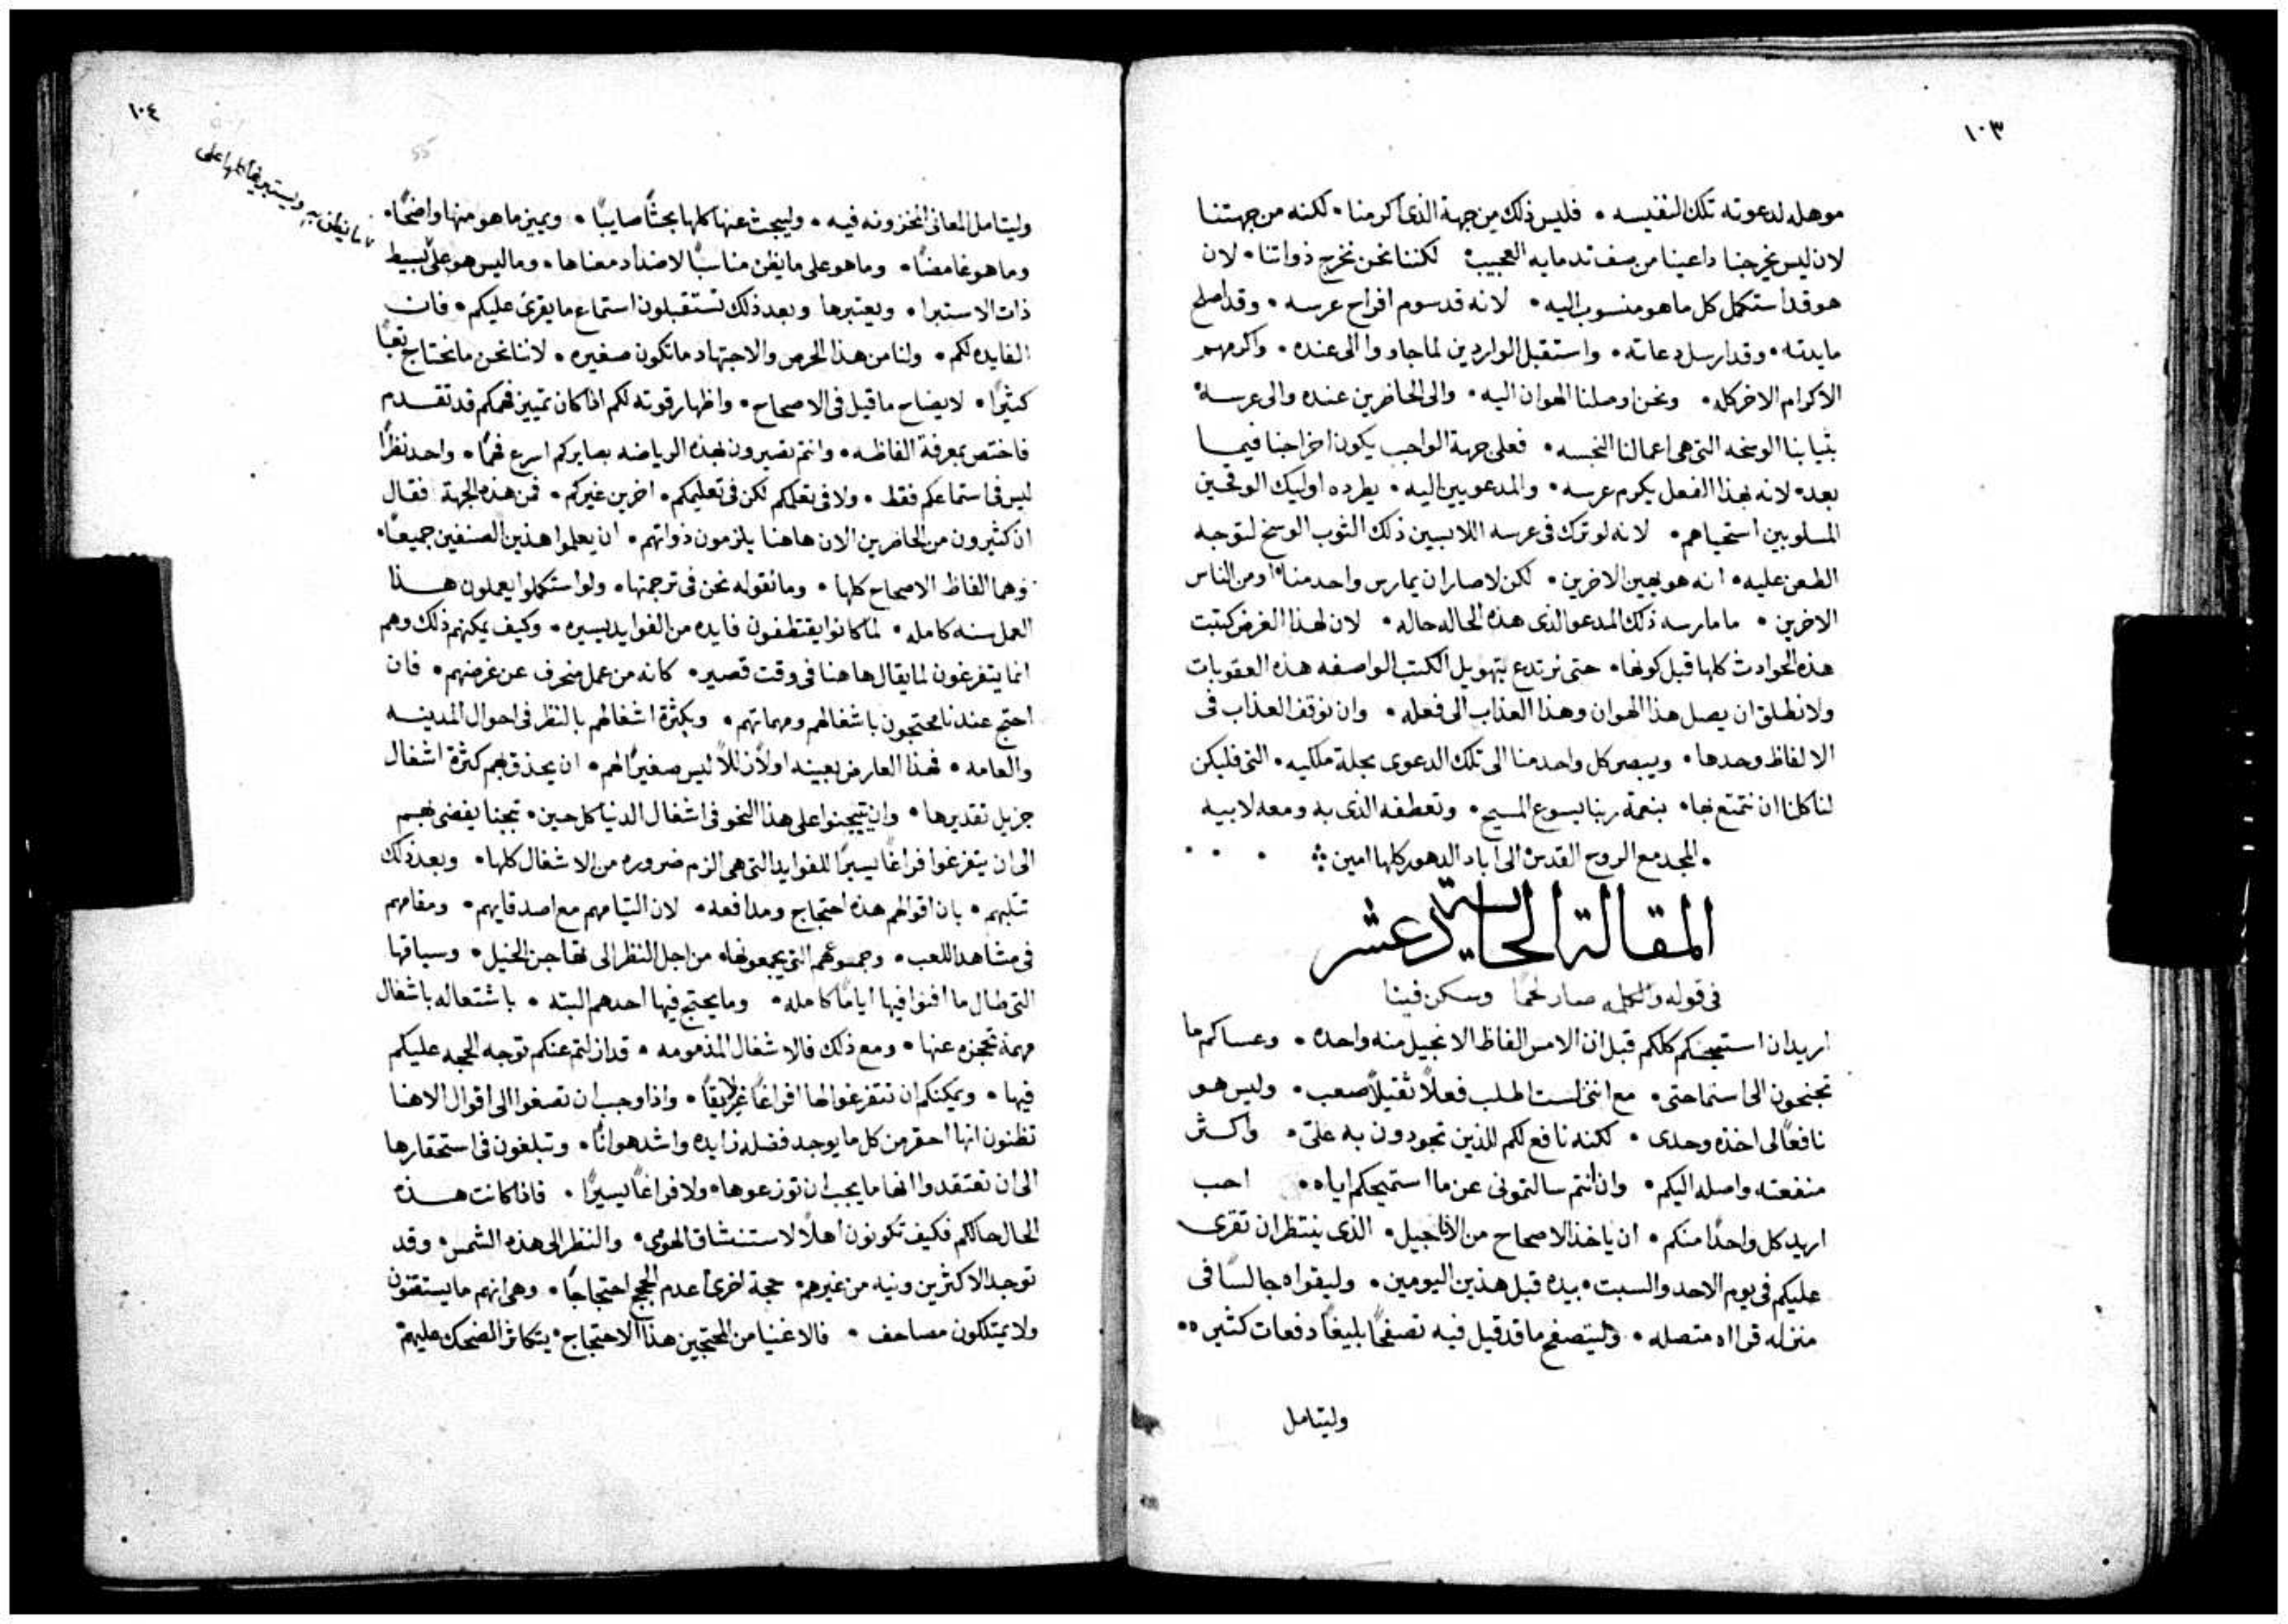 ١٠٣
موهله لدعوته تلك النفيسه • فليس ذلك من جهة الذى اكرمنا • لكنه من جهتنا
لان ليس يخرجنا داعينا من صف ندمايه العجيب • لكننا نحن نخرج ذواتنا • لان
هو قد استكمل كل ما هو منسوب اليه • لانه قد سوم افراح عرسه • وقد اصلح
مايدته • وقد ارسل دعاته • واستقبل الواردين لما جاووا الى عنده • واكرمهم
الاكرام الاخر كله • ونحن اوصلنا الهوان اليه • والى الحاضرين عنده والى عرسه •
بثيابنا الوسخه التى هى اعمالنا النجسه • فعلى جهة الواجب يكون اخراجنا فيما
بعد • لانه بهذا الفعل يكرم عرسه • والمدعويين اليه • بطرده اوليك الوقحين
المسلوبين استحياهم • لانه لو ترك فى عرسه اللابسين ذلك الثوب الوسخ لتوجه
الطعن عليه • انه هو يهين الاخرين • لكن لا صار ان يمارس واحد منا • او من الناس
الاخرين • ما مارسه ذلك المدعو الذى هذه الحاله حاله • لان لهذا الغرض كتبت
هذه الحوادث كلها قبل كونها • حتى نرتدع بتهويل الكتب الواصفه هذه العقوبات
ولا نطلق ان يصل هذا الهوان وهذا العذاب الى فعله • وان نوقف العذاب فى
الالفاظ وحدها • ويبصر كل واحد منا الى تلك الدعوى بحلة ملكيه • التى فليكن
لنا كلنا ان نتمتع بها • بنعمة ربنا يسوع المسيح • وتعطفه الذى به ومعه لابيه
• المجد مع الروح القدس الى اباد الدهور كلها امين
المقالة الحاديةعشر
فى قوله والكلمه صار لحمًا وسكن فينا
اريد ان استميحكم كلكم قبل ان الامس الفاظ الانجيل منه واحده • وعساكم ما
تجنحون الى استماحتى • مع اننى لست اطلب فعلاً ثقيلاً صعب • وليس هو
نافعًا لى اخذه وحدى • لكنه نافع لكم الذين تجودون به علىّ • واكثر
منفعته واصله اليكم • وان انتم سالتمونى عن ما استميحكم اياه • احب
اريد كل واحدًا منكم • ان ياخذ الاصحاح من الاناجيل • الذى ينتظر ان تقرى
عليكم فى يوم الاحد والسبت • بيده قبل هذين اليومين • وليقراه جالسًا فى
منزله قراه متصله • وليتصفح ما قد قيل فيه تصفحًا بليغًا دفعات كثيره ••
وليتامل
١٠٤
وليتامل المعانى المخزونه فيه • وليبحث عنها كلها بحثًا صايبًا • ويميز ما هو منها واضحًا •
وما هو غامضًا • وما هو على ما يظن مناسبًا لاضداد معناها • وما ليس هو على بسيط
ذات الاستبرا • ويعتبرها وبعد ذلك تستقبلون استماع ما يقرى عليكم • فان
الفايده لكم • ولنا من هذا الحرص والاجتهاد ما تكون صغيره • لاننا نحن ما نحتاج تعبًا
كثيرًا • لايضاح ما قيل فى الاصحاح • واظهار قوته لكم اذا كان تمييز فهمكم قد تقدم
فاختص بمعرفة الفاظه • وانتم تصيرون بهذه الرياضه بصايركم اسرع فهمًا • واحد نظرًا
ليس فى استماعكم فقط • ولا فى تعلمكم لكن فى تعليمكم • اخرين غيركم • فمن هذه الجهة فقال
ان كثيرون من الحاضرين الان هاهنا يلزمون ذواتهم • ان يعلموا هذين الصنفين جميعًا •
وهما الفاظ الاصحاح كلها • وما نقوله نحن فى ترجمتها • ولو استكملوا يعملون هذا
العمل سنه كامله • لما كانوا يقتطفون فايده من الفوايد يسيره • وكيف يمكنهم ذلك وهم
انما يتفرغون لما يقال هاهنا فى وقت قصير • كانه من عمل منحرف عن غرضهم • فان
احتج عندنا محتجون باشغالهم ومهماتهم • وبكثرة اشغالهم بالنظر فى احوال المدينه
والعامه • فهذا العارض بعينه اولاً زللاً ليس صغيرًا لهم • ان يحذق بهم كثرة اشغال
جزيل تقديرها • وان يتبحبحوا على هذا النحو فى اشغال الدنيا كل حين • تبحبحًا يفضى بهم
الى ان يتفرغوا فراغًا يسيرًا للفوايد التى هى الزم ضروره من الاشغال كلها • وبعد ذلك
تثلبهم • بان اقوالهم هذه احتجاج ومدافعه • لان التيامهم مع اصدقايهم • ومقامهم
فى مشاهد اللعب • وجموعهم التى يجمعونها • من اجل النظر الى تهاجن الخيل • وسباقها
التى طال ما افنوا فيها ايامًا كامله • وما يحتج فيها احدهم البته • باشتغاله باشغال
مهمة تحجزه عنها • ومع ذلك فالاشغال المذمومه • قد ازلتم عنكم توجه الحجه عليكم
فيها • ويمكنكم ان تتفرغوا لها افراغًا عريقًا • واذا وجب ان تصغوا الى اقوال الاهنا
تظنون انها احقر من كل ما يوجد فضله زايده واشد هوانًا • وتبلغون فى استحقارها
الى ان تعتقدوا انها ما يجب ان توزعوها • ولا فراغًا يسيرًا • فاذا كانت هذه
الحال حالكم فكيف تكونون اهلاً لاستنشاق الهوى • والنظر الى هذه الشمس • وقد
توجد الاكثرين ونيه من غيرهم • حجة اخرى اعدم الحجج احتجاجًا • وهى انهم ما يستقنون
ولا يمتلكون مصاحف • فالاغنيا من المحتجين هذا الاحتجاج • يتكاثر الضحك عليهم
ما يظن به ويستبريها كلها على